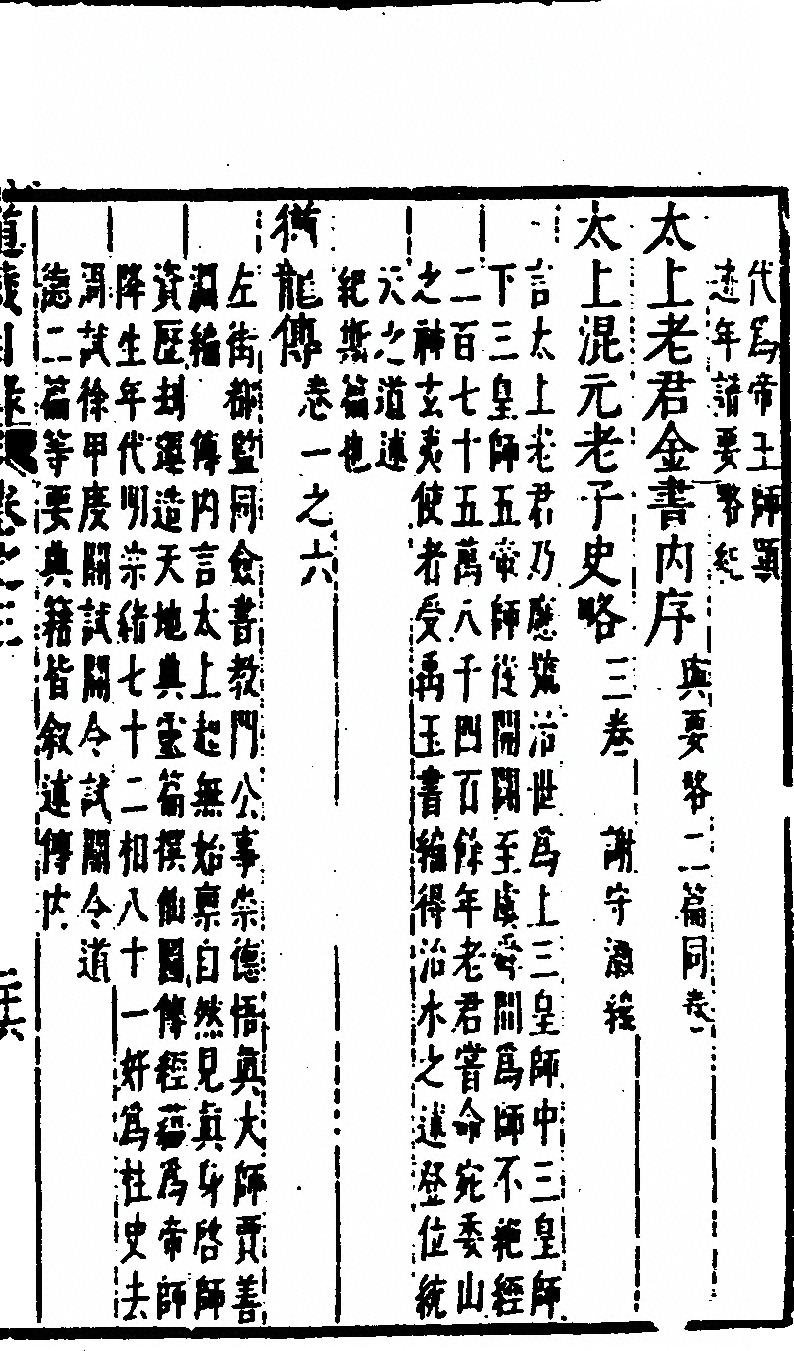 代爲帝王師題
述年譜要略紀
太上老君金書内序與要略二篇同卷
太上混元老子史略三卷 謝守灝編
言太上老君乃應號治世爲上三皇師中三皇師
下三皇師五帝師從開闢至虞舜間爲師不絶經
二百七十五萬八千四百餘年老君嘗命宛委山
之神玄夷使者受禹玉書編得治水之述登位統
天之道述
紀斯篇也
猶龍傳卷一之六
左街都監同僉書教門公事崇德悟眞大師賈善
淵編 傳内言太上起無始禀自然見眞身啓師
資歷刦運造天地典靈篇撰仙圖傳經蘊爲帝師
降生年代明宗緒七十二相八十一好爲柱史去
周試徐甲度關試關令試關令道
德二篇等要典籍皆叙述傳内
道藏目錄 卷之三 二十六